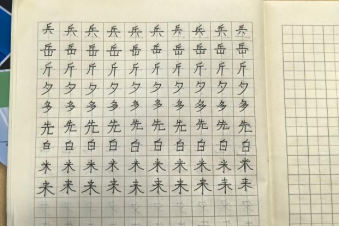 兵兵兵兵兵兵兵兵兵
岳岳岳岳岳岳岳岳岳
斤斤斤斤斤斤斤斤斤
夕夕夕夕夕夕夕夕夕
多多多多多多多多多
先先先先先先先先先
白白白白白白白白白
米米米米米米米米米
来来来来来来来来来